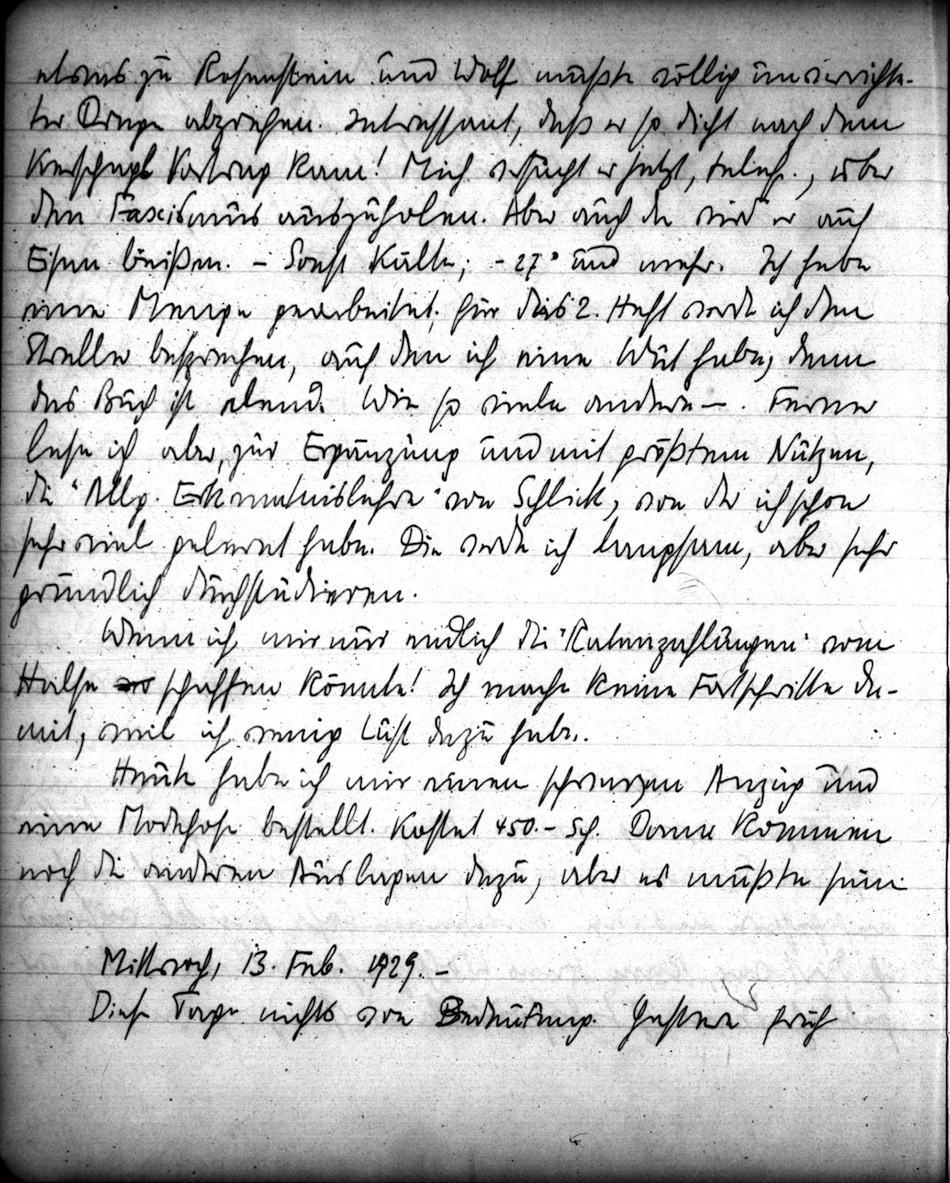 etwas zu Rosenstein und Wolf mußte völlig unverrichte-
ter Dinge abziehen. Interessant, daß er so dicht nach dem
Vortrag kam! Mich versucht er jetzt, teleph., über
den Fascismus auszuholen. Aber auch da wird er auf
Eisen beißen. – Sonst Kälte, -27° und mehr. Ich habe
eine Menge gearbeitet. Für das 2. Heft werde ich den
besprechen, auf den ich eine Wut habe, denn
das Buch ist elend. Wie so viele andere –. Ferner
lese ich aber, zur Ergänzung und mit größtem Nutzen,
die "Allg. Erkenntnislehre" von Schlick, von der ich schon
sehr viel gelernt habe. Die werde ich langsam, aber sehr
gründlich durchstudieren.
Wenn ich mir nur endlich die "Ratenzahlungen" vom
Halse schaffen könnte! Ich mache keine Fortschritte da-
mit, weil ich wenig Lust dazu habe.
Heute habe ich mir einen schwarzen Anzug und
eine Modehose bestellt. Kostet 450.- Sch. Dann kommen
noch die anderen Auslagen dazu, aber es mußte sein.
Mittwoch, 13. Feb. 1929. –
Diese Tage nichts von Bedeutung. Gestern früh